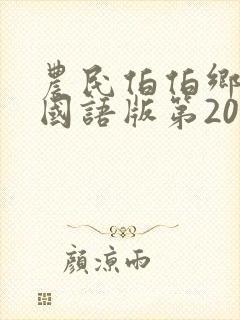 農民伯伯鄉
國語版第20
顏涼雨